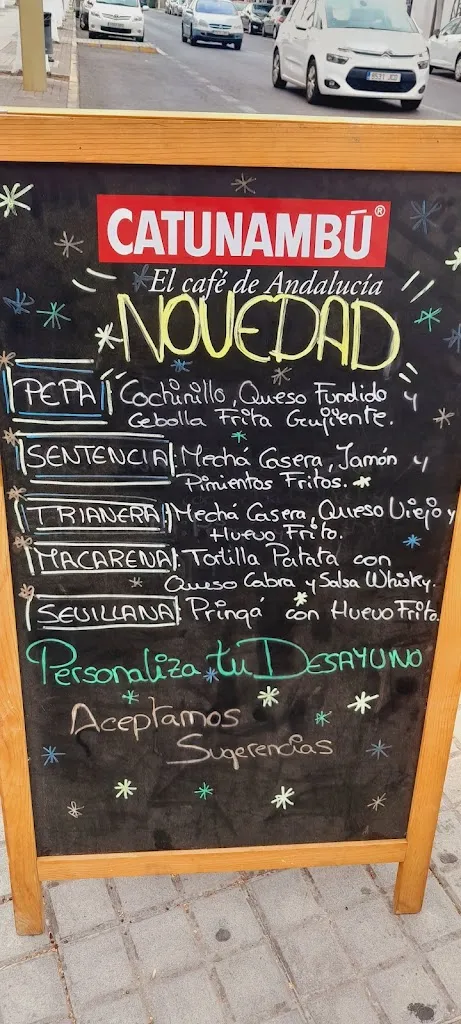 CATUNAMBÚ®
El café de Andalucía
NOVEDAD
PEPA Cochinillo, Queso Fundido y
Cebolla Frita Crujiente.
SENTENCIA: Mechá Casera, Jamón y
Pimientos Fritos.
TRIANERA Mechá Casera, Queso Viejo y
Huevo Frito.
MACARENA: Tortilla Patata con
Queso Cabra y Salsa Whisky.
SEVILLANA: Pringá con Huevo Frito.
Personaliza tu DESAYUNO
Aceptamos
Sugerencias